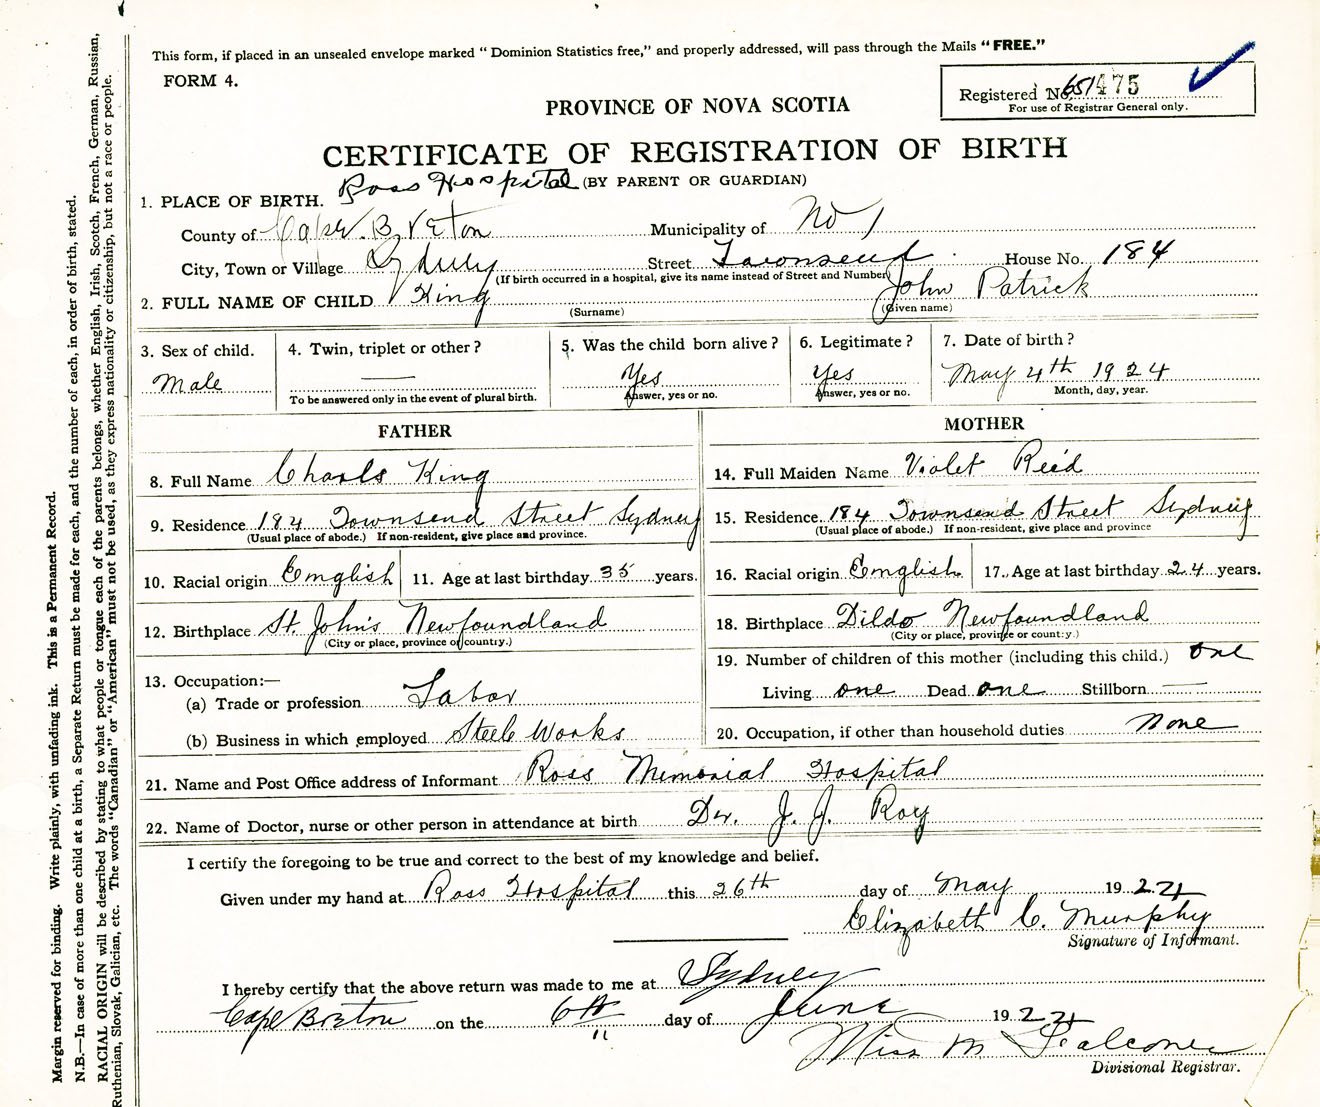 This form, if placed in an unsealed envelope marked " Dominion Statistics free," and properly addressed, will pass through the Mails "FREE."
FORM 4.
Registered No. 651475
For use of Registrar General only.
PROVINCE OF NOVA SCOTIA
CERTIFICATE OF REGISTRATION OF BIRTH
Ross Hospital (BY PARENT OR GUARDIAN)
1. PLACE OF BIRTH.
County of Cape Breton Municipality of No 1
City, Town or Village Sydney Street Townsend House No. 184
(If birth occurred in a hospital, give its name instead of Street and Number)
2. FULL NAME OF CHILD King John Patrick
(Surname) (Given name)
3. Sex of child. 4. Twin, triplet or other? 5. Was the child born alive? 6. Legitimate? 7. Date of birth?
Male — Yes Yes May 4th 1924
To be answered only in the event of plural birth. Answer, yes or no. Answer, yes or no. Month, day, year.
FATHER
8. Full Name Charls King
9. Residence 184 Townsend Street Sydney
(Usual place of abode.) If non-resident, give place and province.
10. Racial origin English 11. Age at last birthday 35 years.
12. Birthplace St. John's Newfoundland
(City or place, province of country.)
13. Occupation:—
(a) Trade or profession Labor
(b) Business in which employed Steel Works
MOTHER
14. Full Maiden Name Violet Reid
15. Residence 184 Townsend Street Sydney
(Usual place of abode.) If non-resident, give place and province
16. Racial origin English 17. Age at last birthday 24 years.
18. Birthplace Dildo Newfoundland
(City or place, province or country.)
19. Number of children of this mother (including this child.) one
Living one Dead one Stillborn —
20. Occupation, if other than household duties None
21. Name and Post Office address of Informant Ross Memorial Hospital
22. Name of Doctor, nurse or other person in attendance at birth Dr. J. J. Roy
I certify the foregoing to be true and correct to the best of my knowledge and belief.
Given under my hand at Ross Hospital this 26th day of May 1924
Elizabeth C. Murphy
Signature of Informant.
I hereby certify that the above return was made to me at Sydney
Cape Breton on the 6th day of June 1924
Miss M Falconer
Divisional Registrar.
Margin reserved for binding. Write plainly, with unfading ink. This is a Permanent Record.
N.B.—In case of more than one child at a birth, a Separate Return must be made for each, and the number of each, in order of birth, stated.
RACIAL ORIGIN will be described by stating to what people or tongue each of the parents belongs, whether English, Irish, Scotch, French, German, Russian,
Ruthenian, Slovak, Galician, etc. The words "Canadian" or "American" must not be used, as they express nationality or citizenship, but not a race or people.